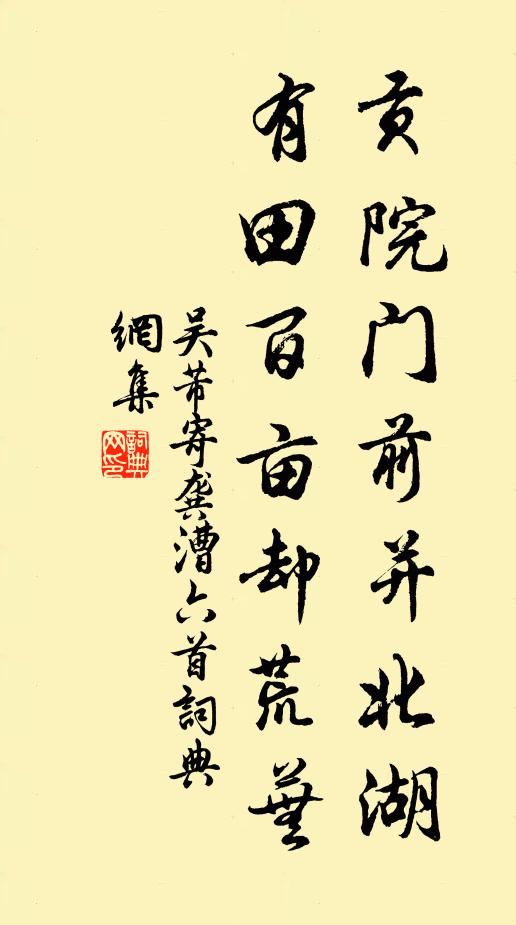 贡院门前并北湖
有田百亩却荒芜
吴芾寄龚漕六首詞典
網集
詞典
网印